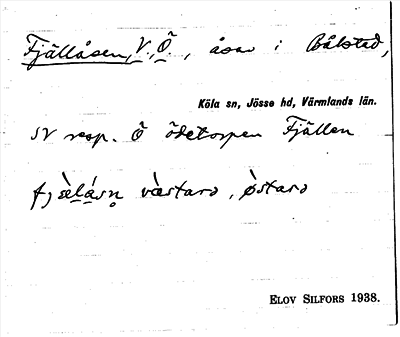 Fjällåsen, V., Ö., åsar i Bålstad,
Köla sn, Jösse hd, Värmlands län.
SV resp. Ö ödetorpen Fjällen
fjæ̀lǻsn̥ væ̀starə, ø̀starə
ELOV SILFORS 1938.